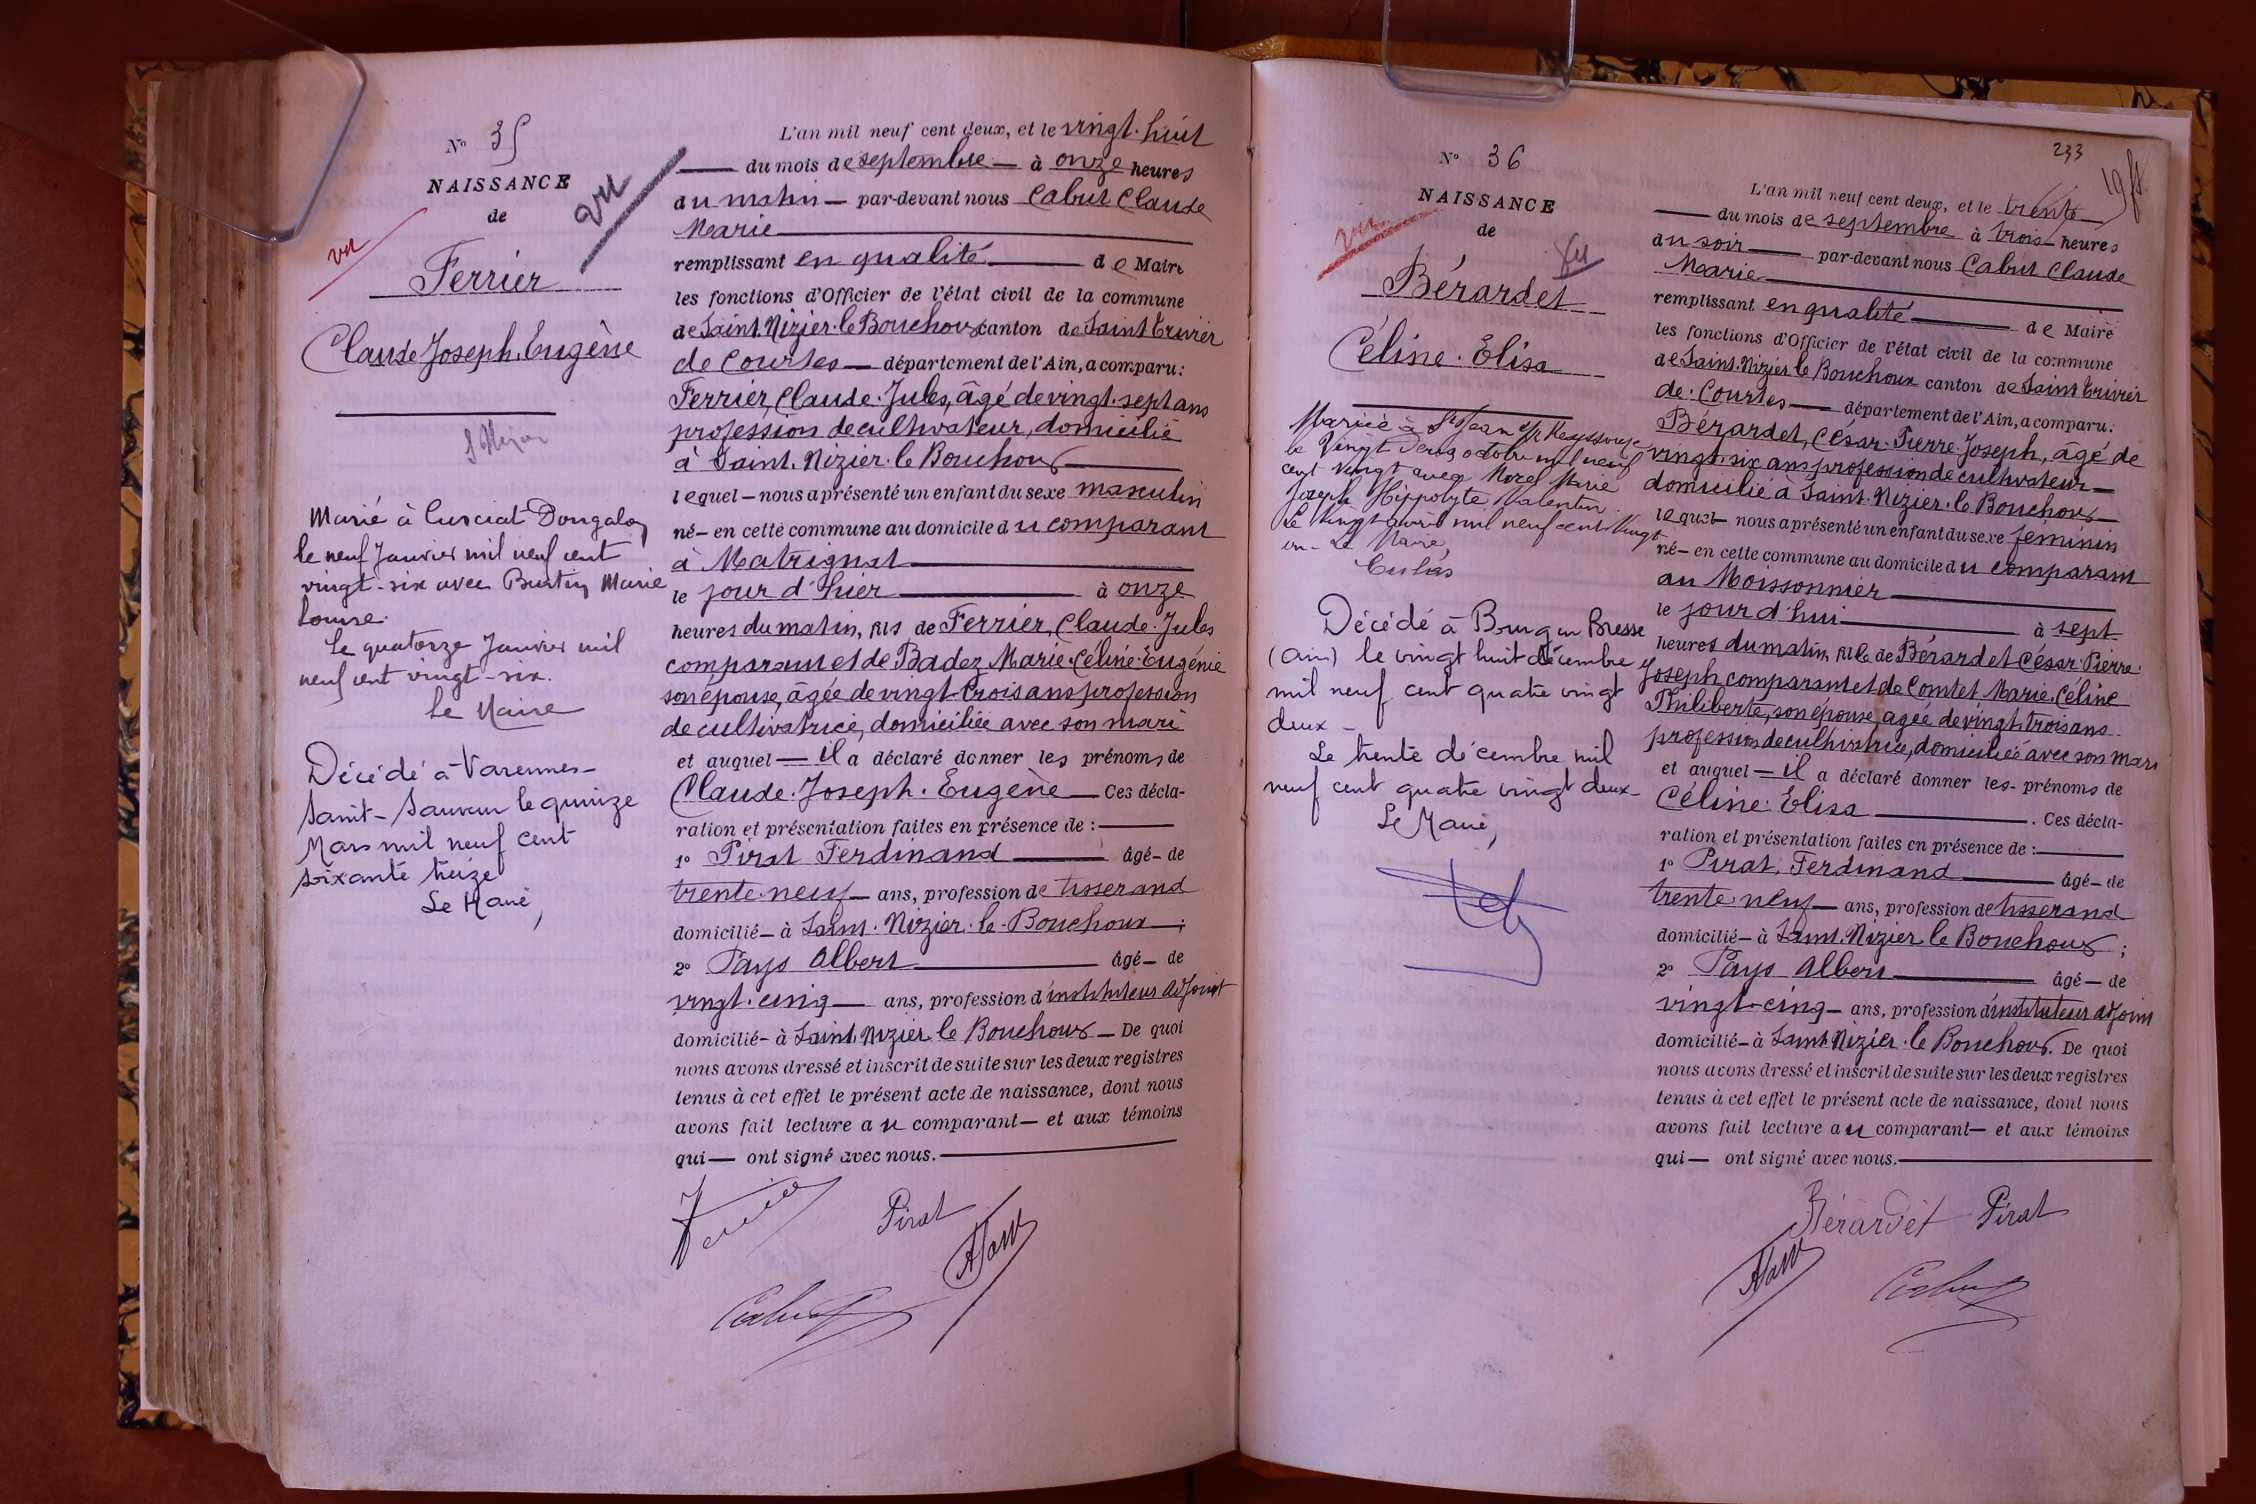 N° 35
NAISSANCE
de
vu
vu
Ferrier
Claude Joseph Eugène
Marié à Curciat Dongalon
le neuf Janvier mil neuf cent
vingt-six avec Burtin Marie
Louise.
Le quatorze Janvier mil
neuf cent vingt-six.
Le Maire
Décédé à Varennes-
Saint-Sauveur le quinze
Mars mil neuf cent
soixante treize
Le Maire,
L'an mil neuf cent deux, et le vingt-huit
du mois de septembre à onze heures
du matin par-devant nous Cabut Claude
Marie
remplissant en qualité de Maire
les fonctions d'Officier de l'état civil de la commune
de Saint-Nizier-le-Bouchoux canton de Saint Trivier
de Courtes département de l'Ain, a comparu :
Ferrier, Claude-Jules, âgé de vingt-sept ans
profession de cultivateur, domicilié
à Saint-Nizier-le-Bouchoux
lequel nous a présenté un enfant du sexe masculin
né en cette commune au domicile du comparant
à Matrignat
le jour d'hier à onze
heures du matin, fils de Ferrier, Claude-Jules
comparant et de Badez Marie-Céline-Eugénie
son épouse, âgée de vingt-trois ans profession
de cultivatrice, domiciliée avec son mari
et auquel il a déclaré donner les prénoms de
Claude-Joseph-Eugène Ces décla-
ration et présentation faites en présence de :
1° Pirat Ferdinand âgé de
trente-neuf ans, profession de tisserand
domicilié à Saint-Nizier-le-Bouchoux ;
2° Pays Albert âgé de
vingt-cinq ans, profession d'instituteur adjoint
domicilié à Saint-Nizier-le-Bouchoux De quoi
nous avons dressé et inscrit de suite sur les deux registres
tenus à cet effet le présent acte de naissance, dont nous
avons fait lecture au comparant et aux témoins
qui ont signé avec nous.
Ferrier Pirat
Cabut
233
N° 36
NAISSANCE
de
vu
vu
Bérardet
Céline-Elisa
Mariée à St Jean s/R Reyssouze
le Vingt deux octobre mil neuf
cent vingt avec Morel Marie
Joseph Hippolyte Valentin.
Le vingt avril mil neuf cent vingt
un - Le Maire,
Décédé à Bourg en Bresse
(Ain) le vingt huit décembre
mil neuf cent quatre vingt
deux -
Le trente décembre mil
neuf cent quatre vingt deux -
Le Maire,
L'an mil neuf cent deux, et le trente
du mois de septembre à trois heures
du soir par-devant nous Cabut Claude
Marie
remplissant en qualité de Maire
les fonctions d'Officier de l'état civil de la commune
de Saint-Nizier-le Bouchoux canton de Saint Trivier
de Courtes département de l'Ain, a comparu :
Bérardet, César-Pierre-Joseph, âgé de
vingt-six ans profession de cultivateur
domicilié à Saint-Nizier-le-Bouchoux
lequel nous a présenté un enfant du sexe féminin
né en cette commune au domicile du comparant
au Moissonnier
le jour d'hui à sept
heures du matin, fille de Bérardet César-Pierre-
Joseph comparant et de Comtet Marie-Céline
Philiberte, son épouse, agée de vingt-trois ans
profession de cultivatrice, domiciliée avec son mari
et auquel il a déclaré donner les prénoms de
Céline-Elisa . Ces décla-
ration et présentation faites en présence de :
1° Pirat, Ferdinand âgé de
trente-neuf ans, profession de tisserand
domicilié à Saint-Nizier le Bouchoux ;
2° Pays Albert âgé de
vingt-cinq ans, profession d'instituteur adjoint
domicilié à Saint-Nizier-le Bouchoux. De quoi
nous avons dressé et inscrit de suite sur les deux registres
tenus à cet effet le présent acte de naissance, dont nous
avons fait lecture au comparant et aux témoins
qui ont signé avec nous.
Bérardet Pirat
Cabut